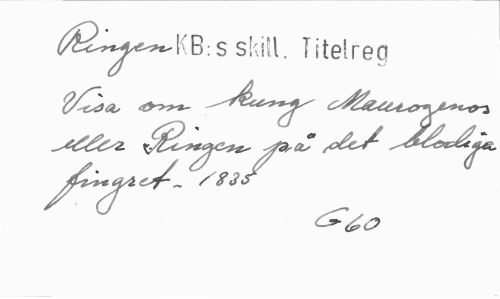 Ringen KB:s skill. Titelreg
Visa om kung Maurogenos
eller Ringen på det blodiga
fingret. 1835
G60